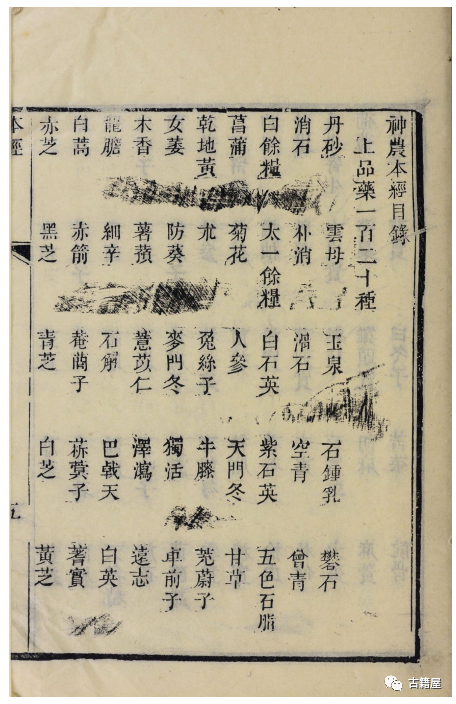 神農本經目錄
上品藥一百二十種
丹砂 雲母 玉泉 石鍾乳 礬石
消石 朴消 滑石 空青 曾青
白餘糧 太一餘糧 白石英 紫石英 五色石脂
菖蒲 菊花 人參 天門冬 甘草
乾地黃 朮 兔絲子 牛膝 茺蔚子
女萎 防葵 麥門冬 獨活 車前子
木香 薯蕷 薏苡仁 澤瀉 遠志
龍膽 細辛 石斛 巴戟天 白英
白蒿 赤箭 菴䕡子 菥蓂子 蓍實
赤芝 黑芝 青芝 白芝 黃芝
本經 五
古籍屋